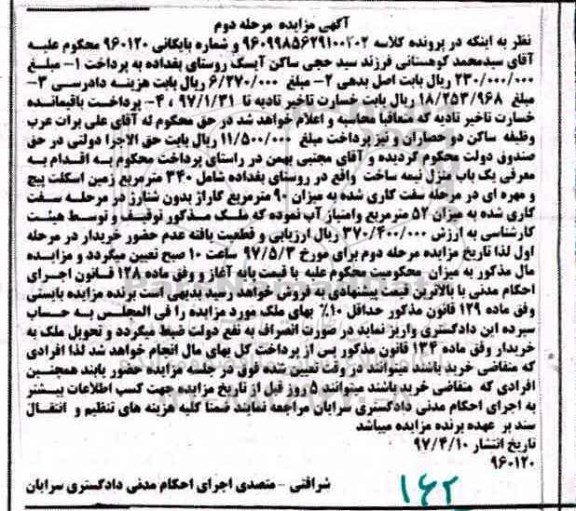 آگهی مزایده مرحله دوم
نظر به اینکه در پرونده کلاسه ۹۶۰۹۹۸۵۶۲۹۱۰۰۲۰۲ و شماره بایگانی ۹۶۰۱۲۰ محکوم علیه
آقای سیدمحمد کوهستانی فرزند سید حجی ساکن آیسک روستای بغداده به پرداخت ۱- مبلغ
۲۳۰/۰۰۰/۰۰۰ ریال بابت اصل بدهی ۲- مبلغ ۶/۲۷۰/۰۰۰ ریال بابت هزینه دادرسی ۳-
مبلغ ۱۸/۲۵۳/۹۶۸ ریال بابت خسارت تاخیر تادیه تا ۹۷/۱/۳۱ ۴- پرداخت باقیمانده
خسارت تاخیر تادیه که متعاقبا محاسبه و اعلام خواهد شد در حق محکوم له آقای علی برات عرب
وظیفه ساکن دو حصاران و نیز پرداخت مبلغ ۱۱/۵۰۰/۰۰۰ ریال بابت حق الاجرا دولتی در حق
صندوق دولت محکوم گردیده و آقای مجتبی بهمن در راستای پرداخت محکوم به اقدام به
معرفی یک باب منزل نیمه ساخت واقع در روستای بغداده شامل ۳۴۰ مترمربع زمین اسکلت پیچ
و مهره ای در مرحله سفت کاری شده به میزان ۹۰ مترمربع گاراژ بدون شناژر در مرحله سفت
کاری شده به میزان ۵۲ مترمربع وامتیاز آب نموده که ملک مذکور توقیف و توسط هیئت
کارشناسی به ارزش ۳۷۰/۴۰۰/۰۰۰ ریال ارزیابی و قطعیت یافته عدم حضور خریدار در مرحله
اول لذا تاریخ مزایده مرحله دوم برای مورخ ۹۷/۵/۳ ساعت ۱۰ صبح تعیین میگردد و مزایده
مال مذکور به میزان محکومیت محکوم علیه با قیمت پایه آغاز و وفق ماده ۱۲۸ قانون اجرای
احکام مدنی با بالاترین قیمت پیشنهادی به فروش خواهد رسید بدیهی است برنده مزایده بایستی
وفق ماده ۱۲۹ قانون مذکور حداقل ۱۰٪ بهای ملک مورد مزایده را فی المجلس به حساب
سپرده این دادگستری واریز نماید در صورت انصراف به نفع دولت ضبط میگردد و تحویل ملک به
خریدار وفق ماده ۱۳۴ قانون مذکور پس از پرداخت کل بهای مال انجام خواهد شد لذا افرادی
که متقاضی خرید باشند میتوانند در وقت تعیین شده فوق در جلسه مزایده حضور یابند همچنین
افرادی که متقاضی خرید باشند میتوانند ۵ روز قبل از تاریخ مزایده جهت کسب اطلاعات بیشتر
به اجرای احکام مدنی دادگستری سرایان مراجعه نمایند ضمنا کلیه هزینه های تنظیم و انتقال
سند بر عهده برنده مزایده میباشد
تاریخ انتشار ۹۷/۴/۱۰
۹۶۰۱۲۰
شرافتی - متصدی اجرای احکام مدنی دادگستری سرایان
۱۶۲